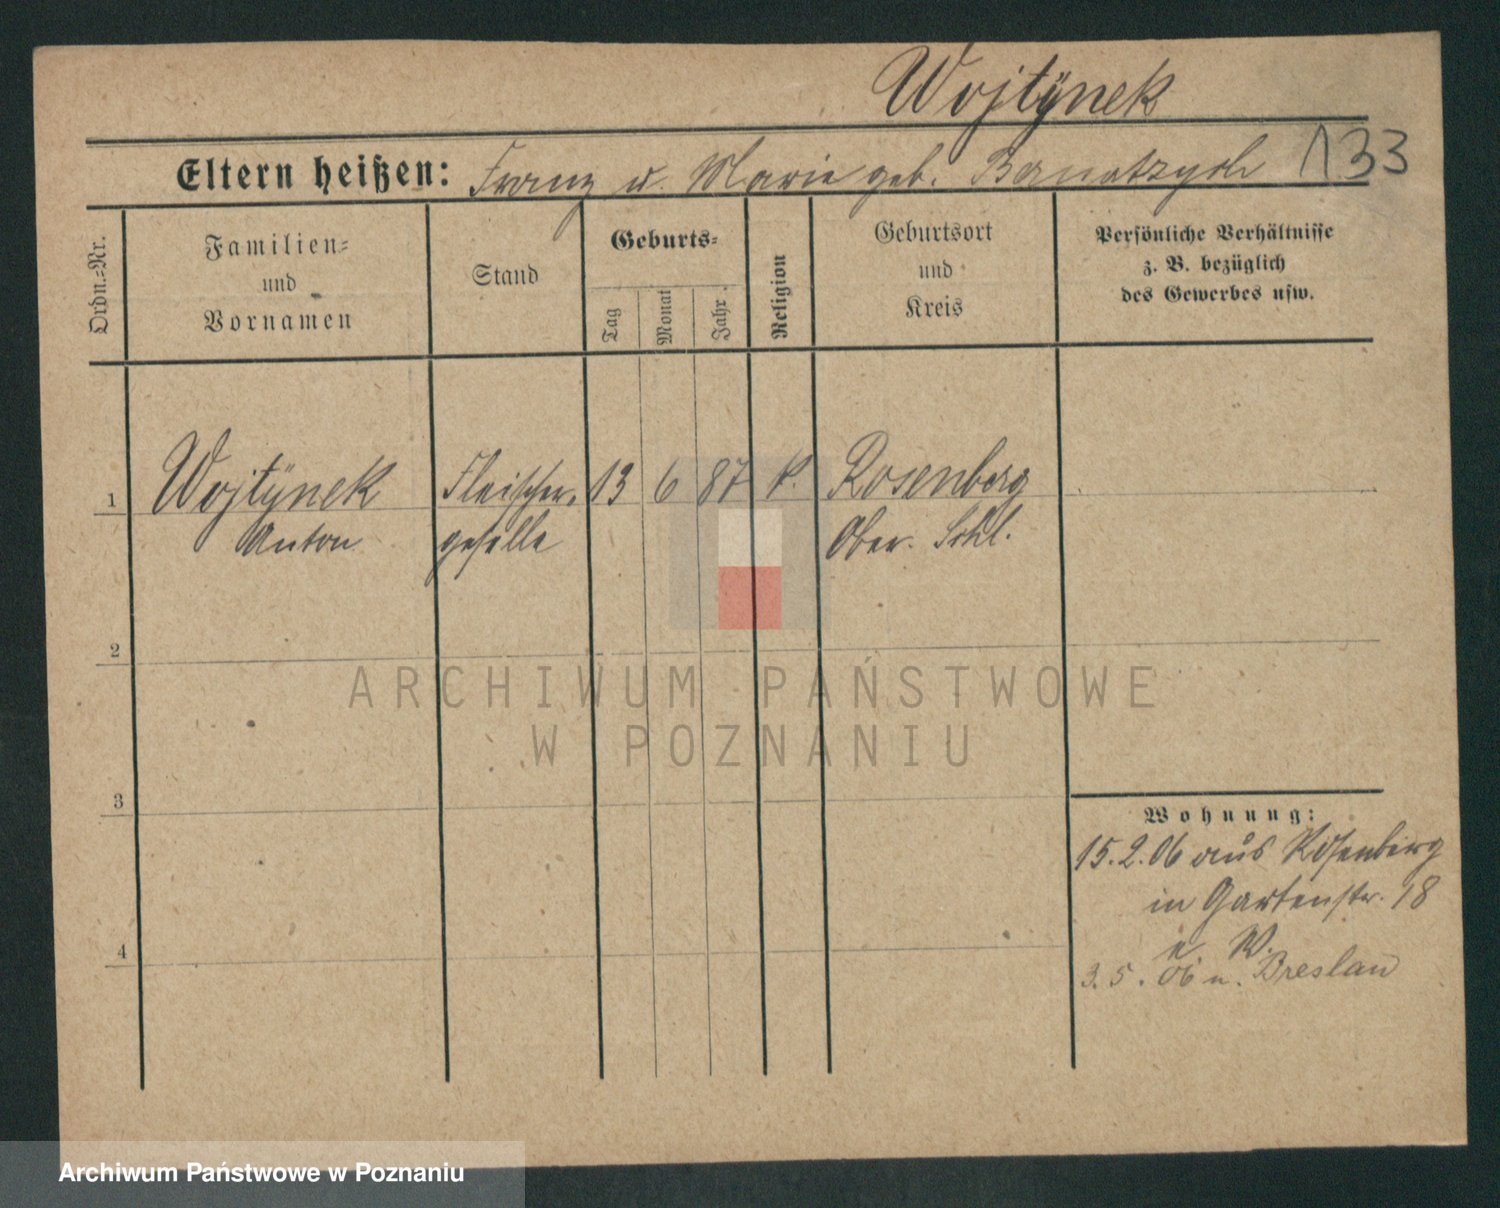 Wojtÿnek
Eltern heißen: Franz u. Marie geb. 133
Ordn.-Nr.
Familien-
und
Vornamen
Stand
Geburts-
Tag
Monat
Jahr
Religion
Geburtsort
und
Kreis
Persönliche Verhältnisse
z. B. bezüglich
des Gewerbes usw.
1 Wojtÿnek Fleischer- 13 6 87 k. Rosenberg
Anton geselle Ober. Schl.
2
ARCHIWUM PAŃSTWOWE
W POZNANIU
3
Wohnung:
15.2.06 aus Rosenberg
in Gartenstr. 18
W.
4
3.5.06 n. Breslau
Archiwum Państwowe w Poznaniu